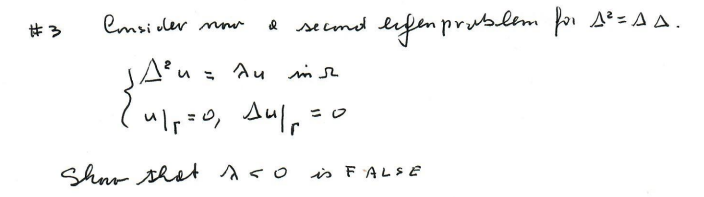 #3 Consider now a second eigenproblem for Δ² = Δ Δ.
{ Δ²u = λu in Ω
u|_Γ = 0, Δu|_Γ = 0
Show that λ < 0 is FALSE